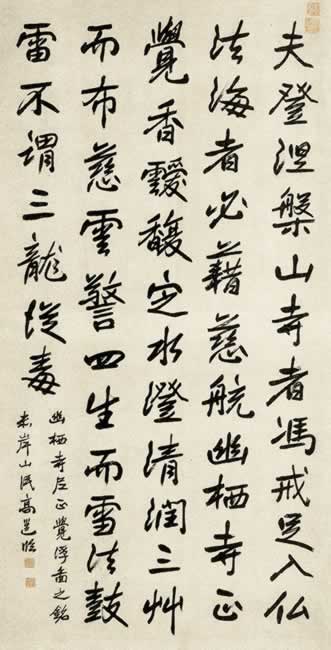 夫登涅槃山寺者馮戒足入仏
法海者必藉慈航幽栖寺正
覺香靉馥定水澄清潤三艸
而布慈雲警四生而雷法鼓
雷不謂三龍從毒
幽栖寺尼正覺浮啚之銘
赤岸山民高邕臨